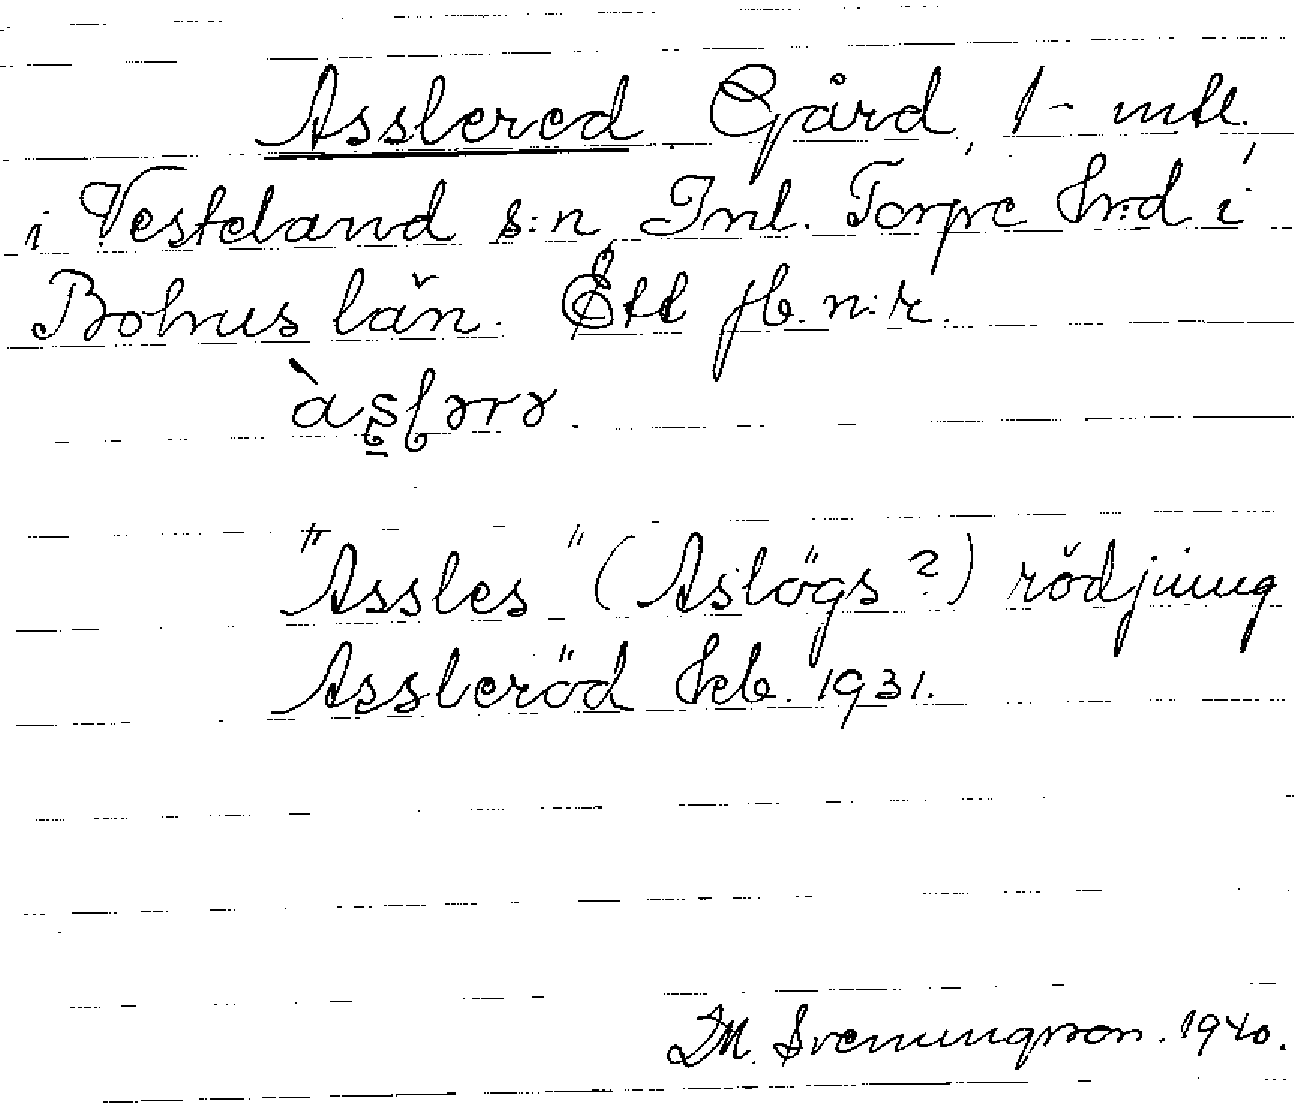 Asslered Gård, 1 - mtl.
i Vesteland s:n, Inl. Torpe hrd i
Bohus län. Ett jb. n:r.
"Assles" (Aslögs?) rödjning
Assleröd Jrb. 1931.
D.M. Svenningsson. 1940.